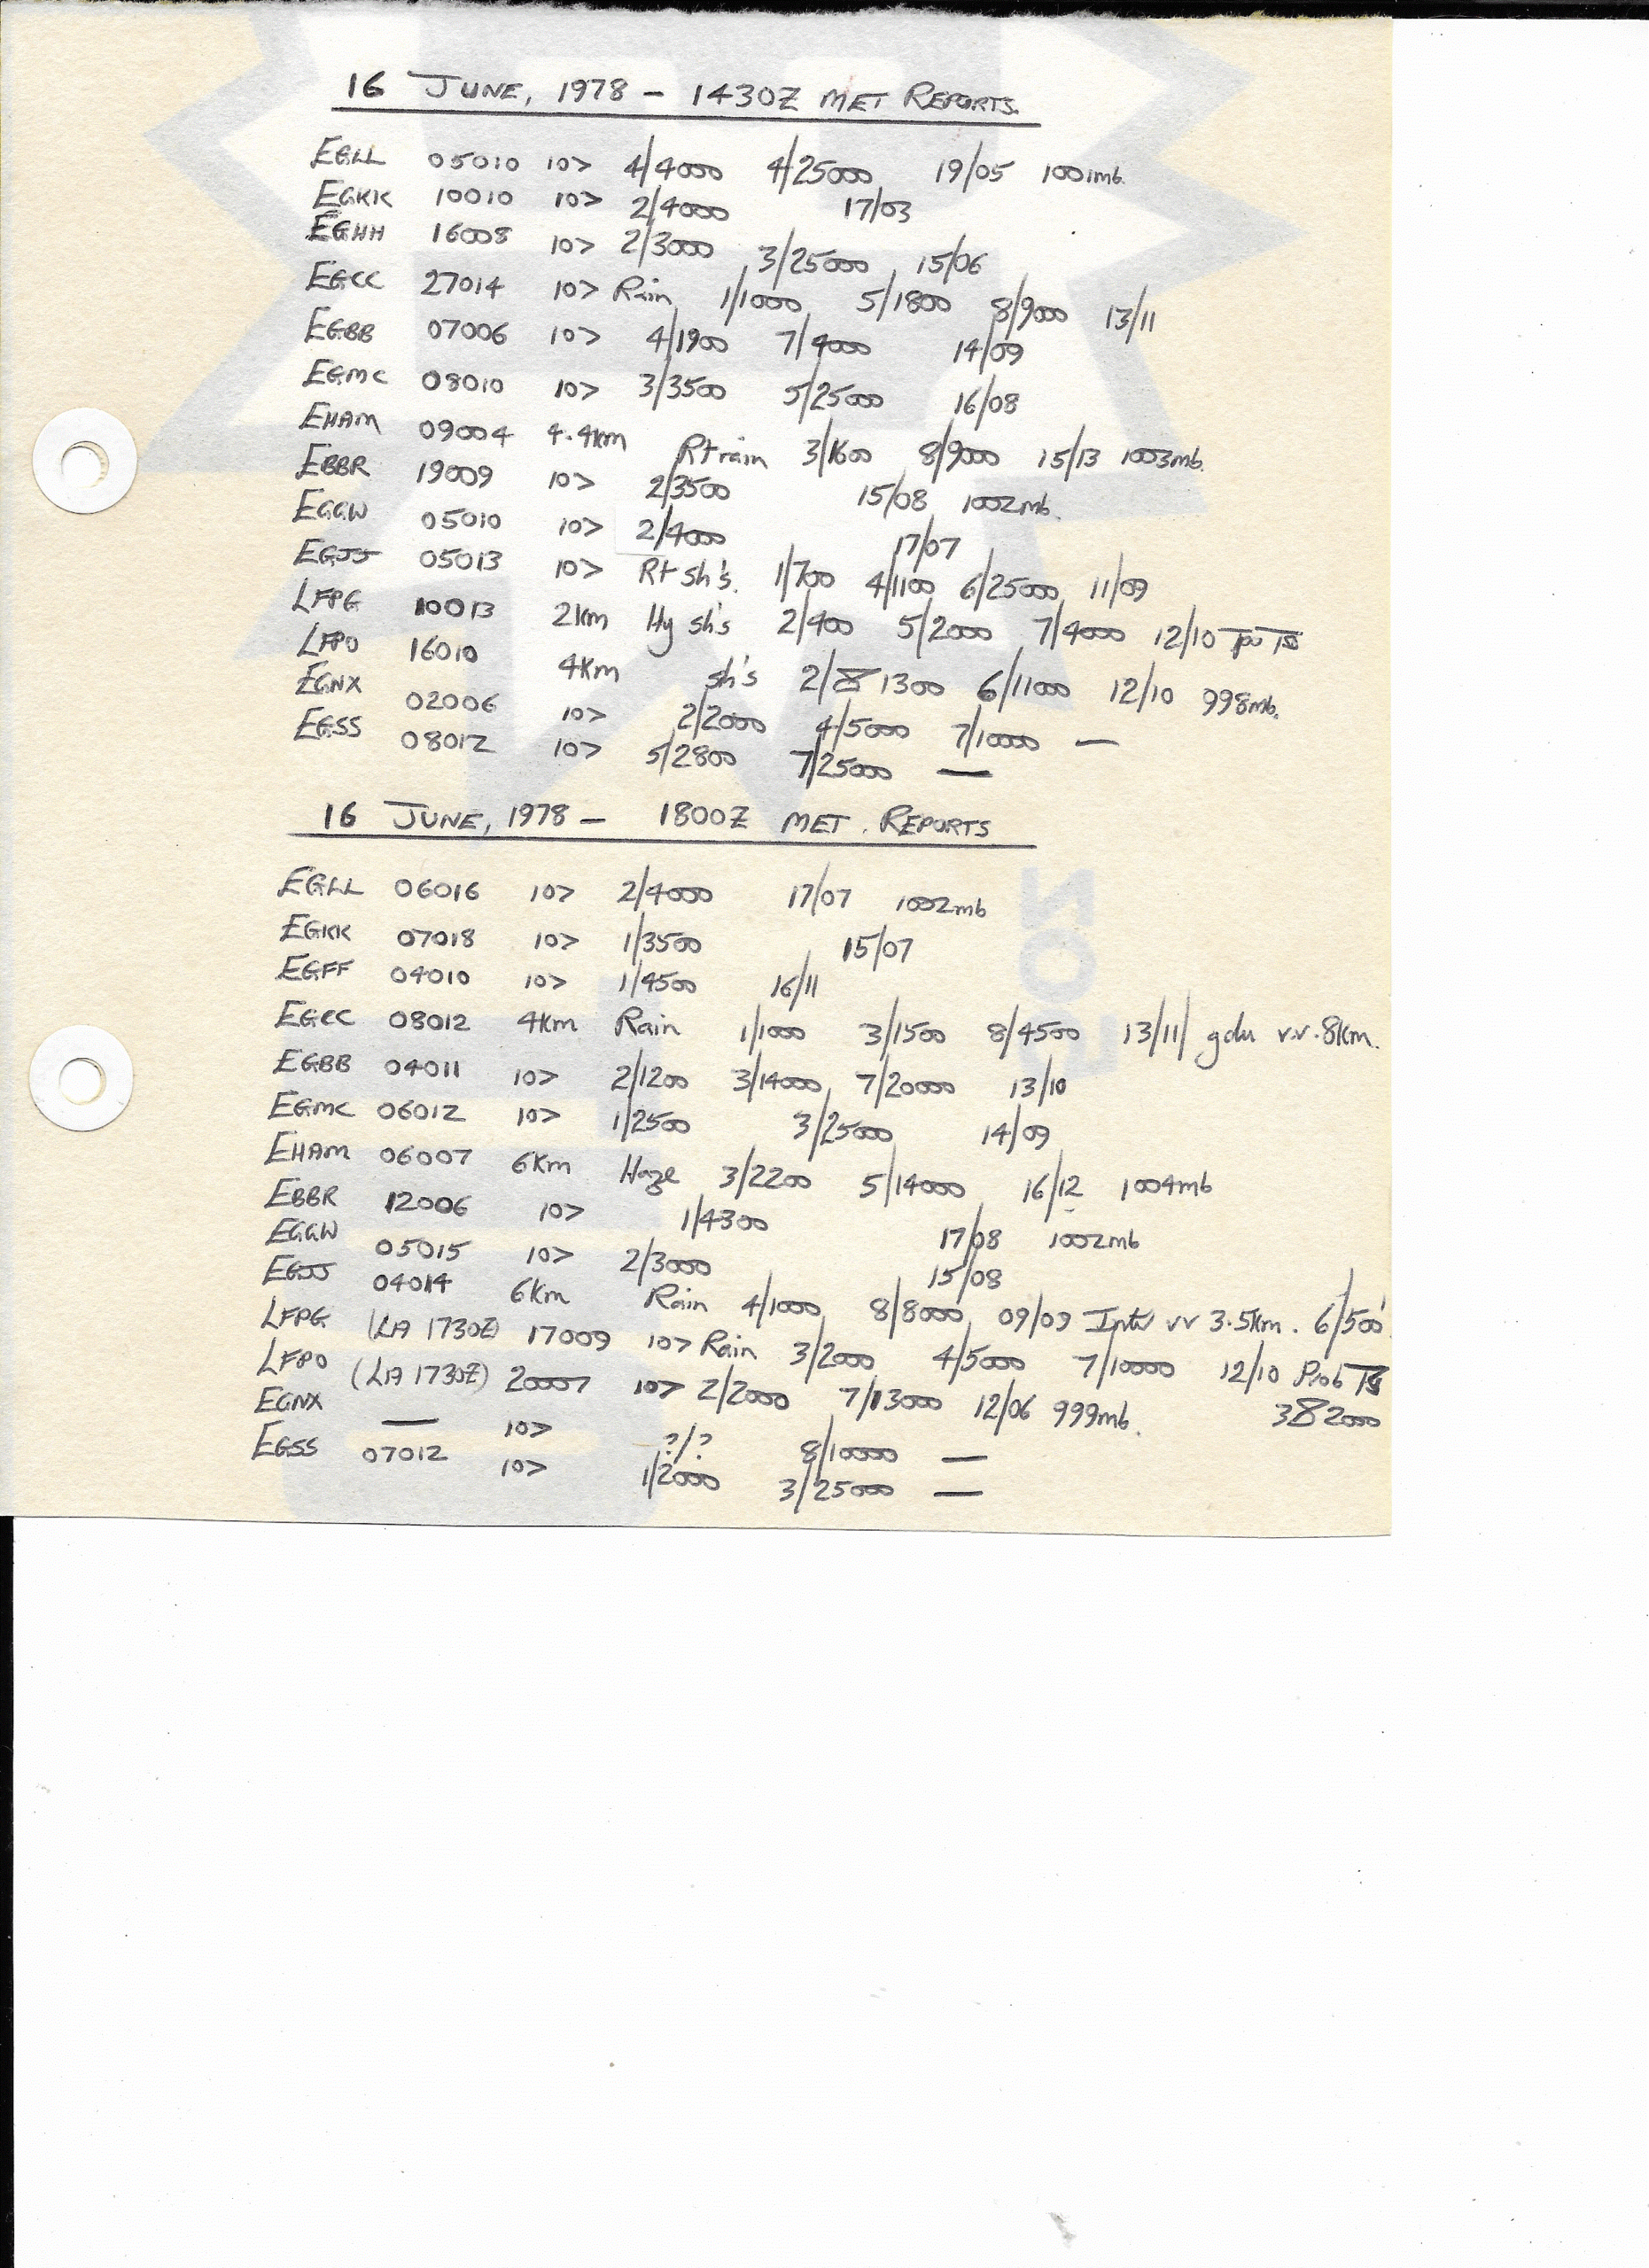 16 JUNE, 1978 - 1430Z MET REPORTS.
EGLL 05010 10> 4/4000 4/25000 19/05 1001mb.
EGKK 10010 10> 2/4000 17/03
EGHH 16008 10> 2/3000 3/25000 15/06
EGCC 27014 10> Rain 1/1000 5/1800 8/9000 13/11
EGBB 07006 10> 4/1900 7/4000 14/09
EGMC 08010 10> 3/3500 5/25000 16/08
EHAM 09004 4.4km Rt rain 3/1600 8/9000 15/13 1003mb.
EBBR 19009 10> 2/3500 15/08 1002mb.
EGGW 05010 10> 2/4000 17/07
EGJJ 05013 10> Rt sh's. 1/700 4/1100 6/25000 11/09
LFPG 10013 2km Hy sh's 2/400 5/2000 7/4000 12/10
LFPO 16010 4km sh's 2/1300 6/11000 12/10 998mb.
EGNX 02006 10> 2/2000 4/5000 7/10000 —
EGSS 08012 10> 5/2800 7/25000 —
16 JUNE, 1978 - 1800Z MET. REPORTS
EGLL 06016 10> 2/4000 17/07 1002mb
EGKK 07018 10> 1/3500 15/07
EGFF 04010 10> 1/4500 16/11
EGCC 08012 4km Rain 1/1000 3/1500 8/4500 13/11/ gdu v.v. 8km.
EGBB 04011 10> 2/1200 3/14000 7/20000 13/10
EGMC 06012 10> 1/2500 3/25000 14/09
EHAM 06007 6km Haze 3/2200 5/14000 16/12 1004mb
EBBR 12006 10> 1/4300 17/08 1002mb
EGGW 05015 10> 2/3000 15/08
EGJJ 04014 6km Rain 4/1000 8/8000 09/09 Intr vv 3.5km. 6/500'
LFPG (LA 1730Z) 17009 10> Rain 3/2000 4/5000 7/10000 12/10 Prob TS
LFPO (LA 1730Z) 20007 10> 2/2000 7/13000 12/06 999mb. 382000
EGNX — 10> ?/? 8/10000 —
EGSS 07012 10> 1/2000 3/25000 —